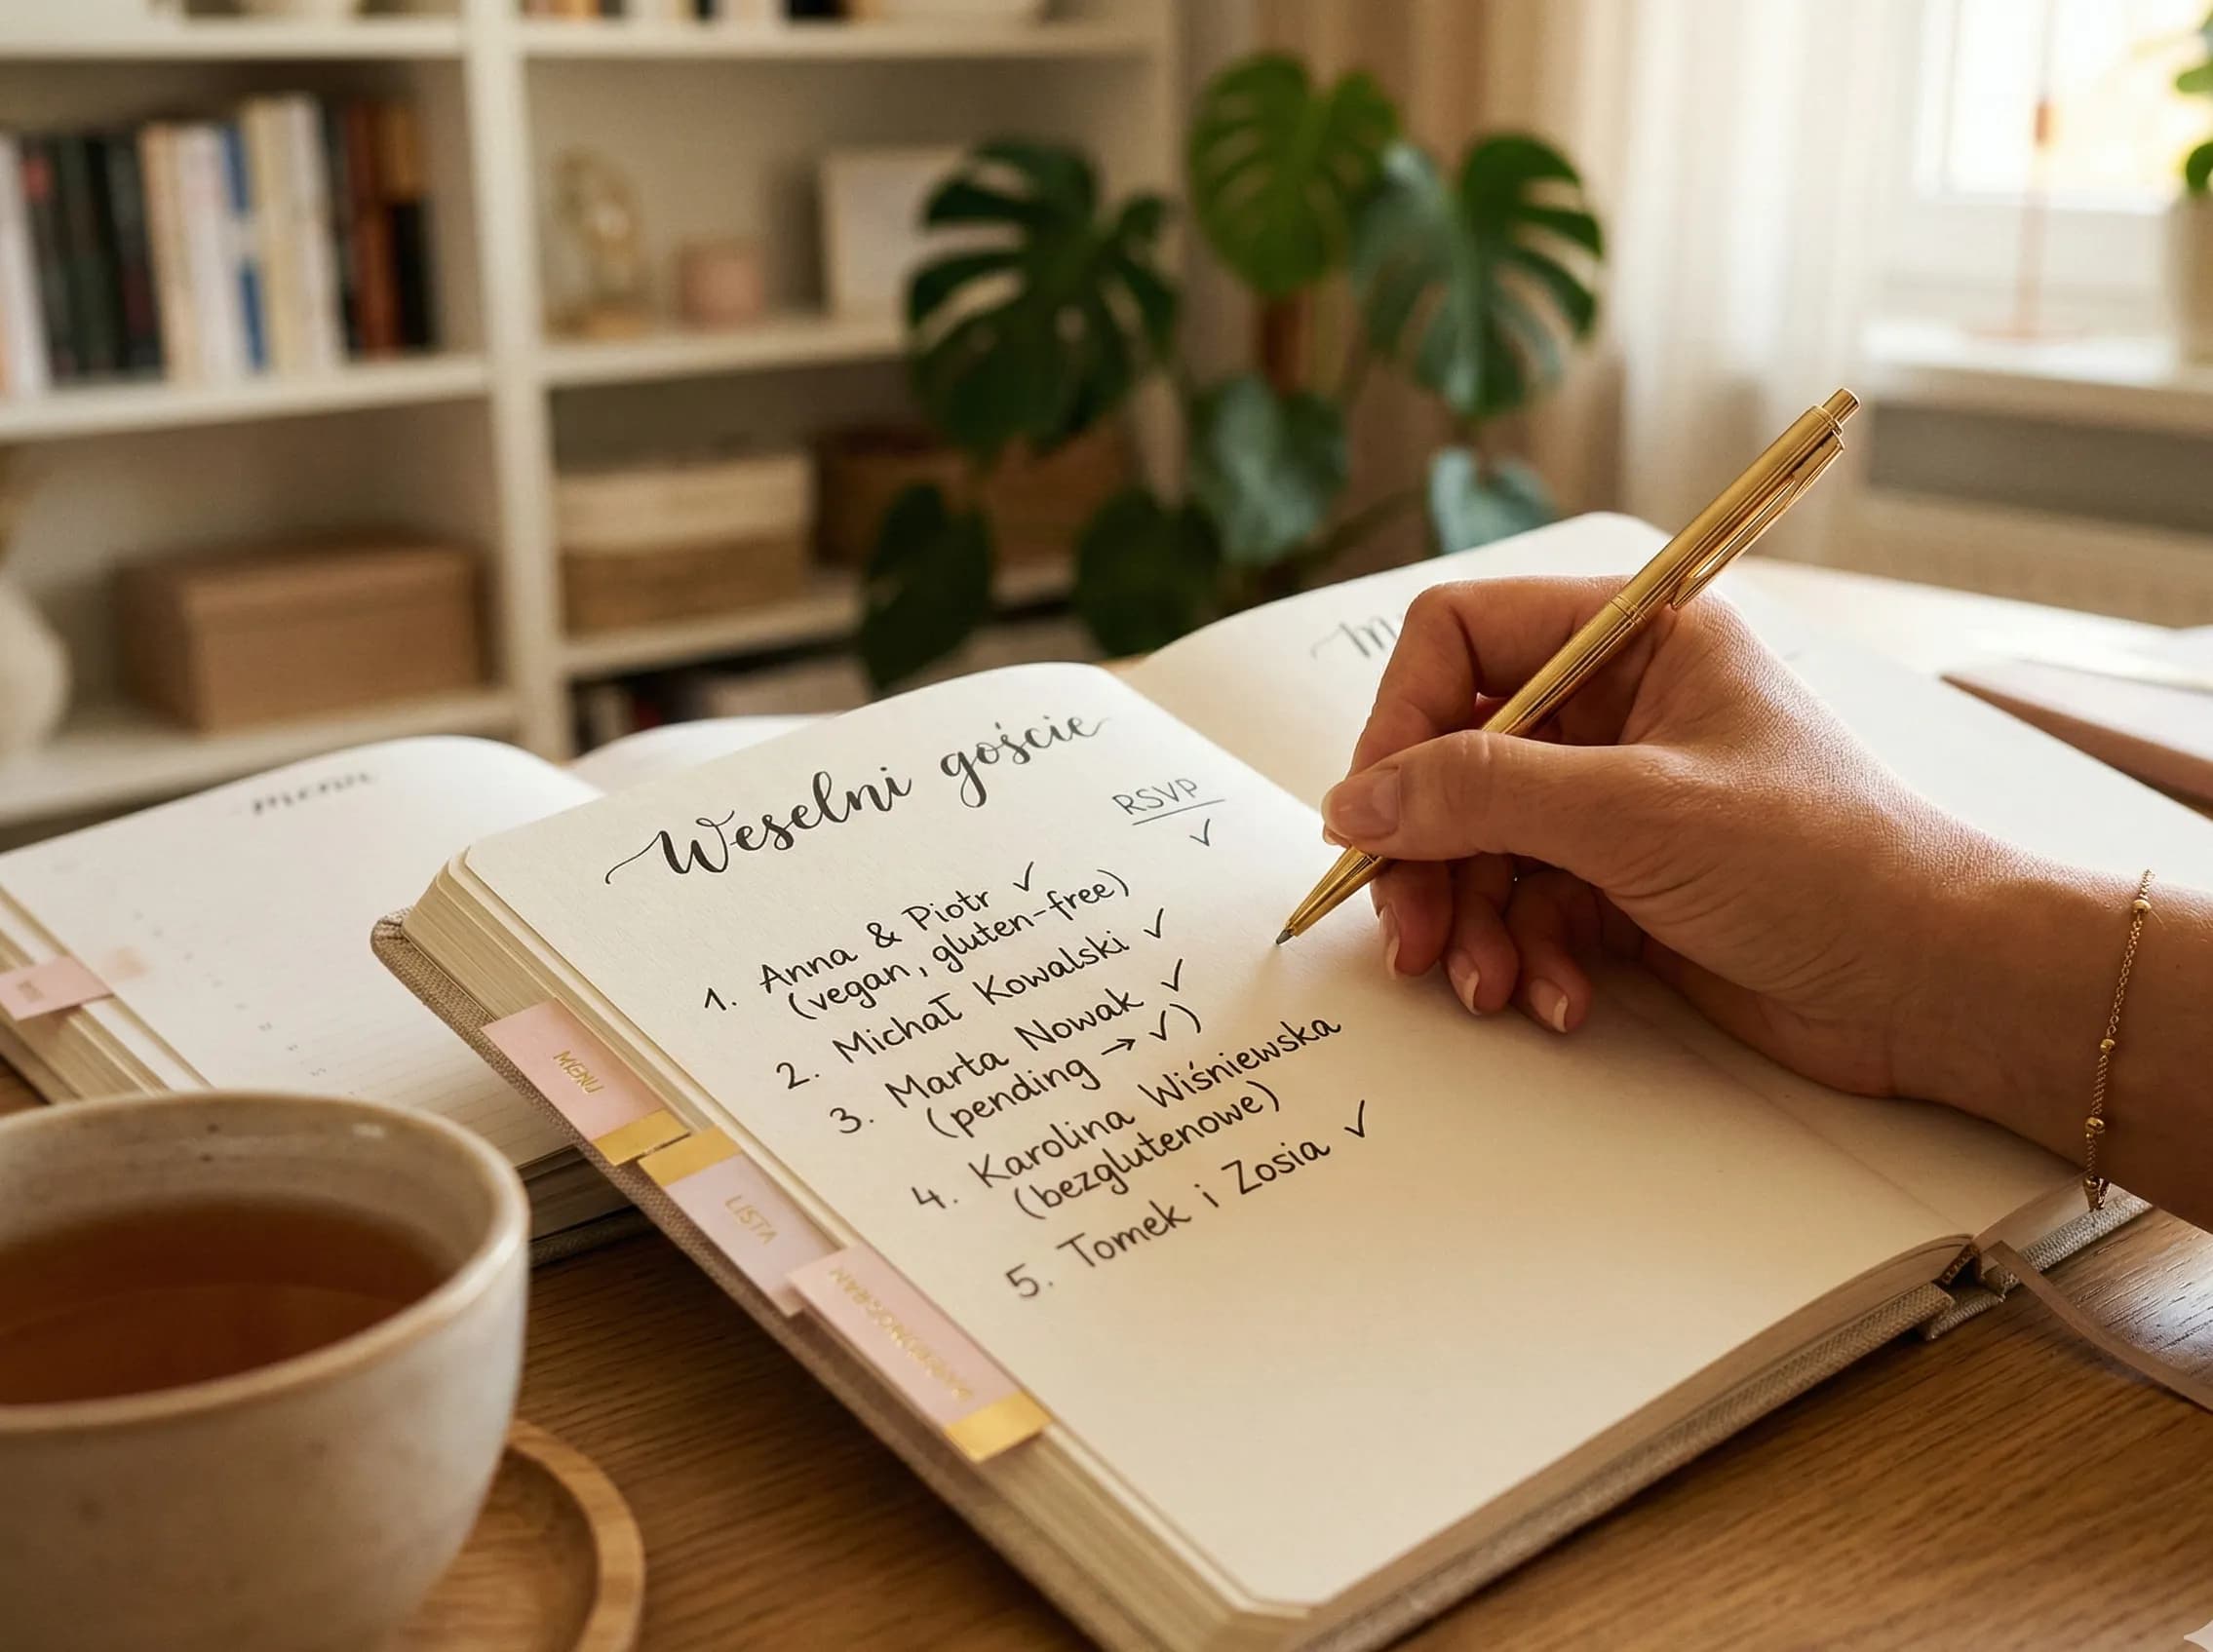 Weselni goście
RSVP
✓
1. Anna & Piotr ✓
(vegan, gluten-free)
2. Michał Kowalski ✓
3. Marta Nowak ✓
(pending → ✓)
4. Karolina Wiśniewska
(bezglutenowe)
5. Tomek i Zosia ✓
MENU
LISTA
menu